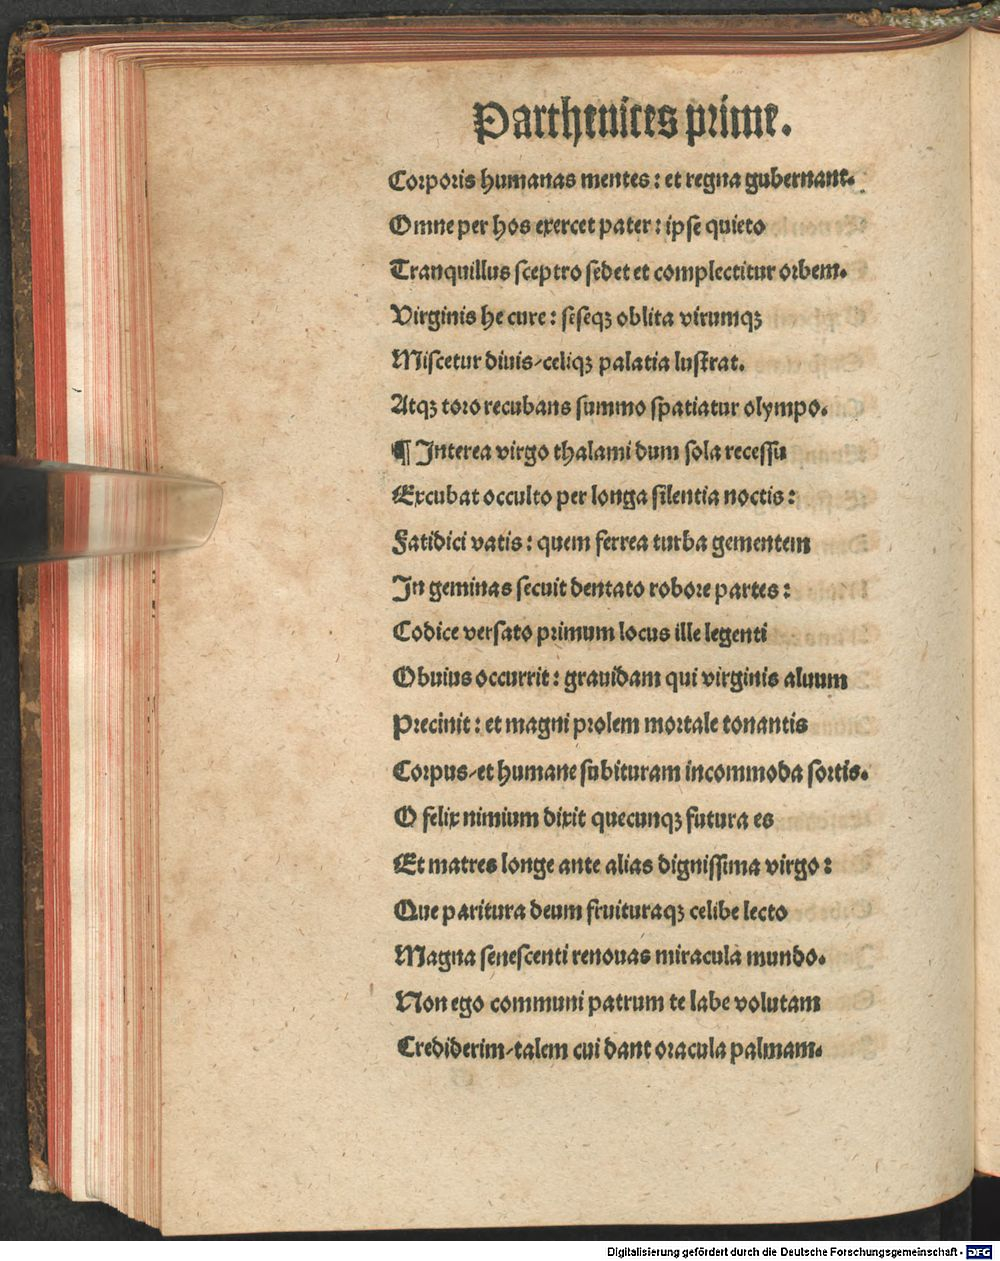 Parthenices prime.
Corporis humanas mentes: et regna gubernant.
Omne per hos exercet pater: ipse quieto
Tranquillus sceptro sedet et complectitur orbem.
Virginis he cure: seseqꝫ oblita virumqꝫ
Miscetur diuis/celiqꝫ palatia lustrat.
Atqꝫ toro recubans summo spatiatur olympo.
¶ Interea virgo thalami dum sola recessu
Excubat occulto per longa silentia noctis:
Fatidici vatis: quem ferrea turba gementem
In geminas secuit dentato robore partes:
Codice versato primum locus ille legenti
Obuius occurrit: grauidam qui virginis aluum
Precinit: et magni prolem mortale tonantis
Corpus/et humane subituram incommoda sortis.
O felix nimium dixit quecunqꝫ futura es
Et matres longe ante alias dignissima virgo:
Que paritura deum fruituraqꝫ celibe lecto
Magna senescenti renouas miracula mundo.
Non ego communi patrum te labe volutam
Crediderim/talem cui dant oracula palmam.
Digitalisierung gefördert durch die Deutsche Forschungsgemeinschaft - DFG